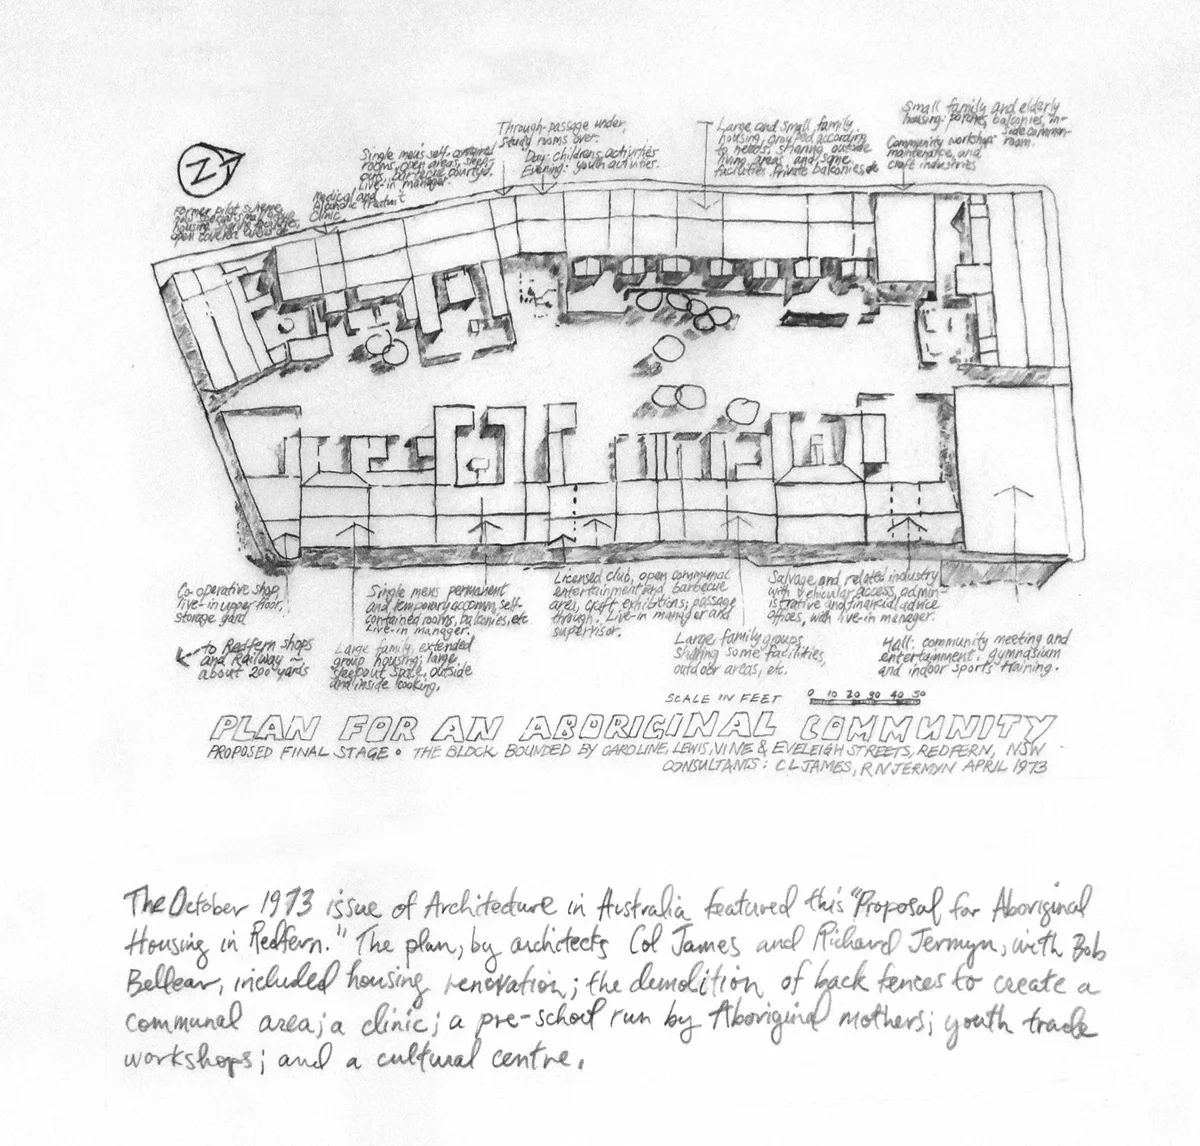 Small family and elderly
housing: porches, balconies, in-
side common-
room.
Community workshop:
maintenance, and
craft industries
Large and small family
housing, grouped according
to needs, sharing outside
living areas and some
facilities. Private balconies etc
Through-passage under,
study rooms over.
Day: childrens activities
Evening: youth activities.
Single men's self-contained
rooms, open areas,
courtyd.
Live-in manager.
Medical and
Clinic
Former pilot scheme
housing
open covered areas etc
N
Co operative shop,
live-in upper floor,
storage yard
to Redfern shops
and Railway ~
about 200 yards
Single mens permanent
and temporary accomm, self-
contained rooms, balconies, etc
Live-in manager.
Large family, extended
group housing; large
sleepout space, outside
and inside cooking.
Licensed club, open communal
entertainment and barbecue
area, craft exhibitions; passage
through. Live-in manager and
supervisor.
Large family groups,
sharing some facilities,
outdoor areas, etc.
Salvage and related industry
with vehicular access, admin-
istrative and financial advice
offices, with live-in manager.
Hall: community meeting and
entertainment, gymnasium
and indoor sports training.
SCALE IN FEET 0 10 20 30 40 50
PLAN FOR AN ABORIGINAL COMMUNITY
PROPOSED FINAL STAGE • THE BLOCK BOUNDED BY CAROLINE, LEWIS, VINE & EVELEIGH STREETS, REDFERN, NSW
CONSULTANTS: C L JAMES, R N JERMYN APRIL 1973
The October 1973 issue of Architecture in Australia featured this "Proposal for Aboriginal
Housing in Redfern." The plan, by architects Col James and Richard Jermyn, with Bob
Bellear, included housing renovation; the demolition of back fences to create a
communal area; a clinic; a pre-school run by Aboriginal mothers; youth trade
workshops; and a cultural centre.